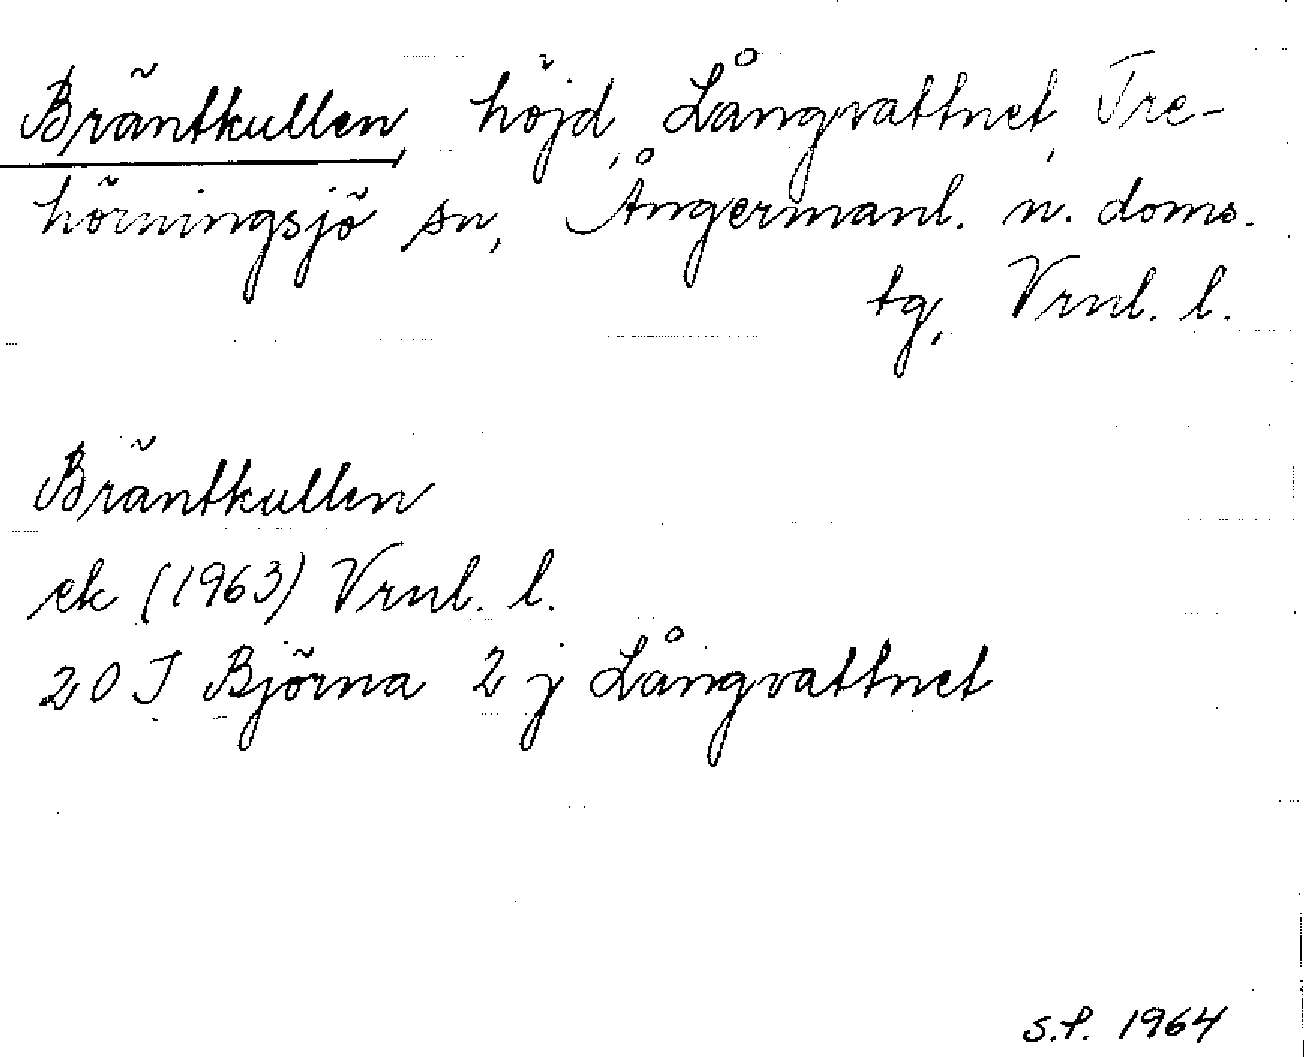 Bräntkullen, höjd, Långvattnet, Tre-
hörningsjö sn, Ångermanl. n. doms.
tg, Vrnl. l.
Bräntkullen
ek (1963) Vrnl. l.
20 J Björna 2 j Långvattnet
S.P. 1964